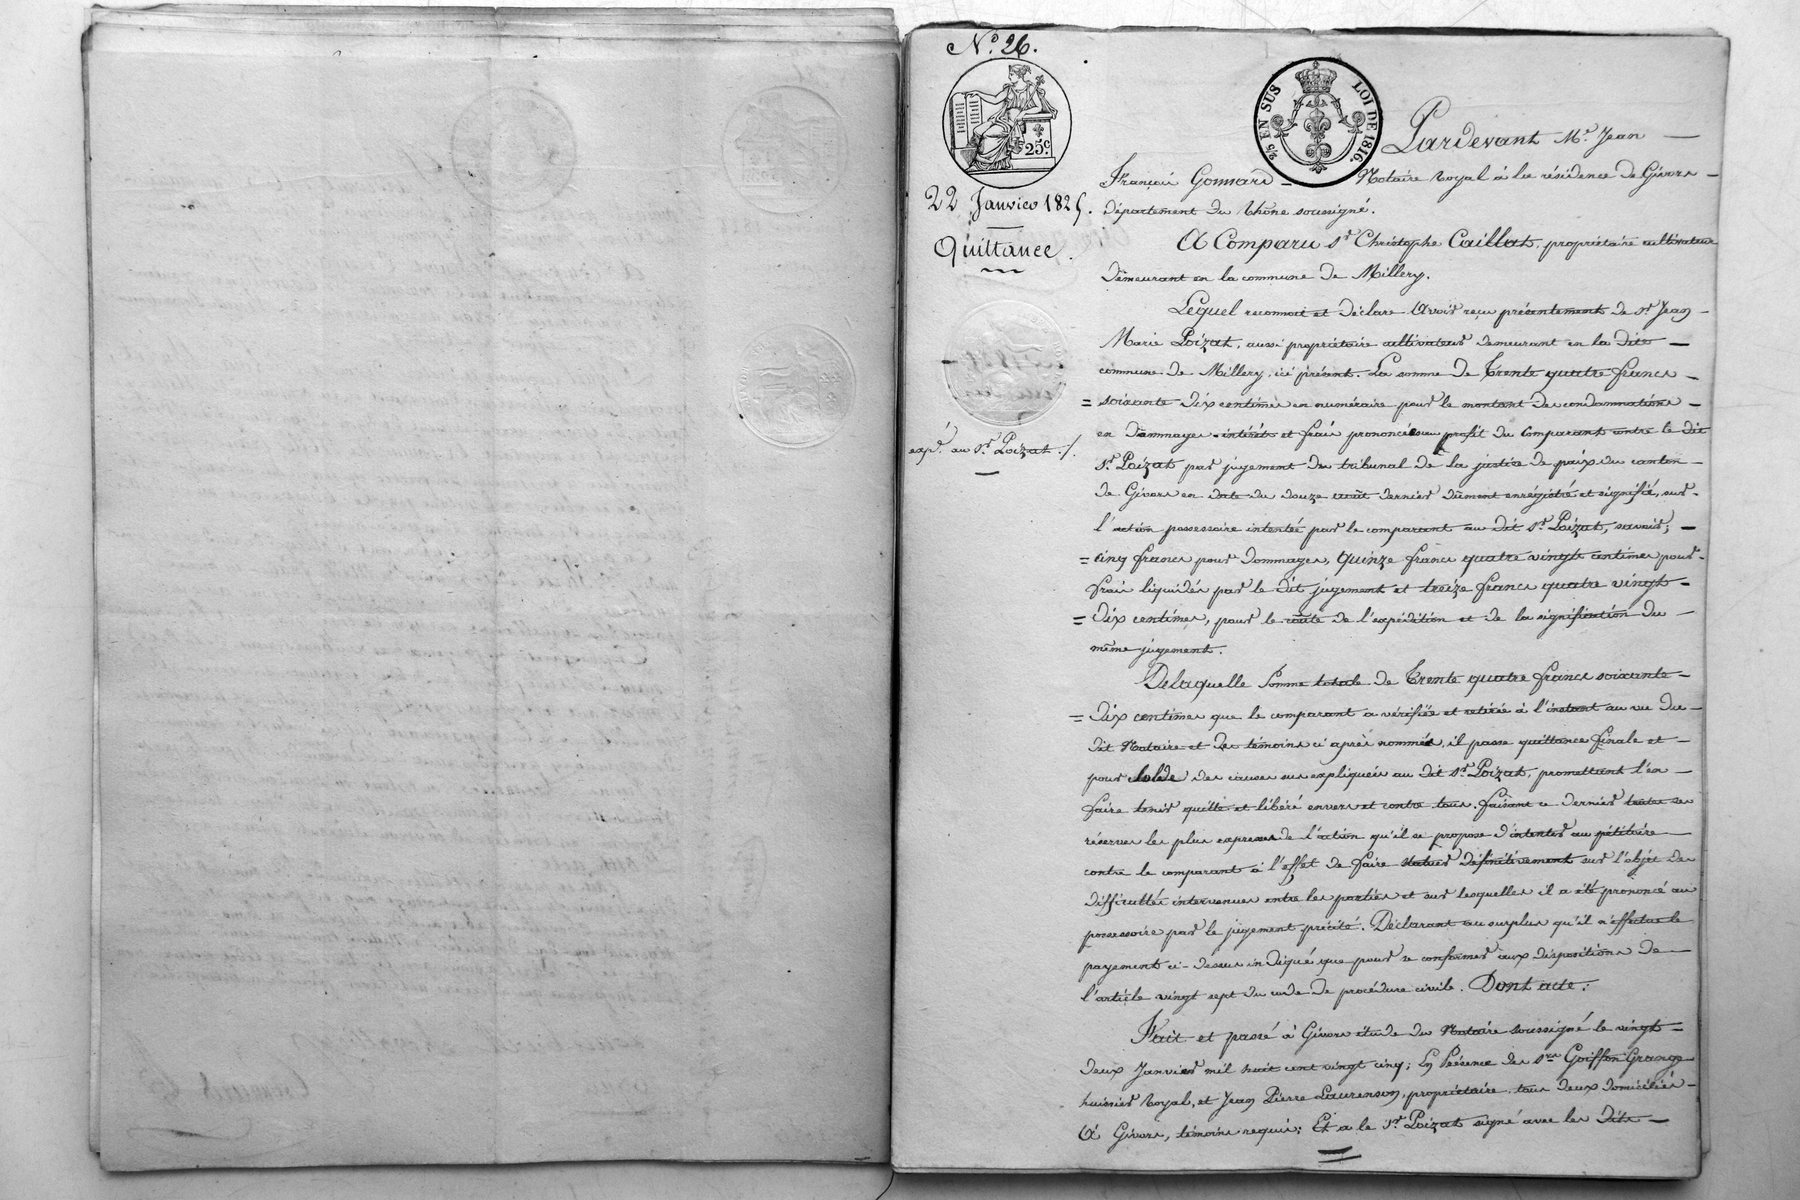 N.º 26.
25.c
2/5 EN SUS LOI DE 1816.
22 Janvier 1825.
Quittance.
exp.é au S.r Poizat ./.
Pardevant M.e Jean
François Gonnard Notaire royal à la résidence de Givors
département du Rhône soussigné.
A Comparu s.r Christophe Caillat, propriétaire cultivateur
demeurant en la commune de Millery.
Lequel reconnoit et déclare avoir reçu présentement de s.r Jean
Marie Poizat, aussi propriétaire cultivateur demeurant en la dite
commune de Millery, ici présent. La somme de Trente quatre francs
= soixante dix centimes en numéraire pour le montant des condamnations
en dommages-intérêts et frais prononcés au profit du comparant contre le dit
s.r Poizat par jugement du tribunal de la justice de paix du canton
de Givors en date du douze août dernier dûment enrégistré et signifié, sur
l'action possessoire intentée par le comparant au dit s.r Poizat, savoir;
= cinq francs pour dommages, quinze francs quatre vingts centimes pour
frais liquidés par le dit jugement et treize francs quatre vingt
= dix centimes, pour le coûte de l'expédition et de la signification du
même jugement.
De laquelle somme totale de Trente quatre francs soixante
= dix centimes que le comparant a vérifiée et retirée à l'instant au vu du
dit Notaire et des témoins ci après nommés, il passe quittance finale et
pour solde des causes sus expliquées au dit s.r Poizat, promettant l'en
faire tenir quitte et libéré envers et contre tous. faisant ce dernier toutes ses
réserves les plus expresses de l'action qu'il se propose d'intenter au pétitoire
contre le comparant à l'effet de faire statuer définitivement sur l'objet des
difficultés intervenues entre les parties et sur lesquelles il a été prononcé au
possessoire par le jugement précité. Déclarant au surplus qu'il n'effectue le
payement ci-dessus indiqué que pour se conformer aux dispositions de
l'article vingt sept du code de procédure civile. Dont acte:
Fait et passé à Givors étude du Notaire soussigné le vingt
deux Janvier mil huit cent vingt cinq; En Présence des s.rs Goiffon Grange
huissier royal, et Jean Pierre Laurenson, propriétaire, tous deux domiciliés
à Givors, témoins requis: Et a le s.r Poizat signé avec les dits